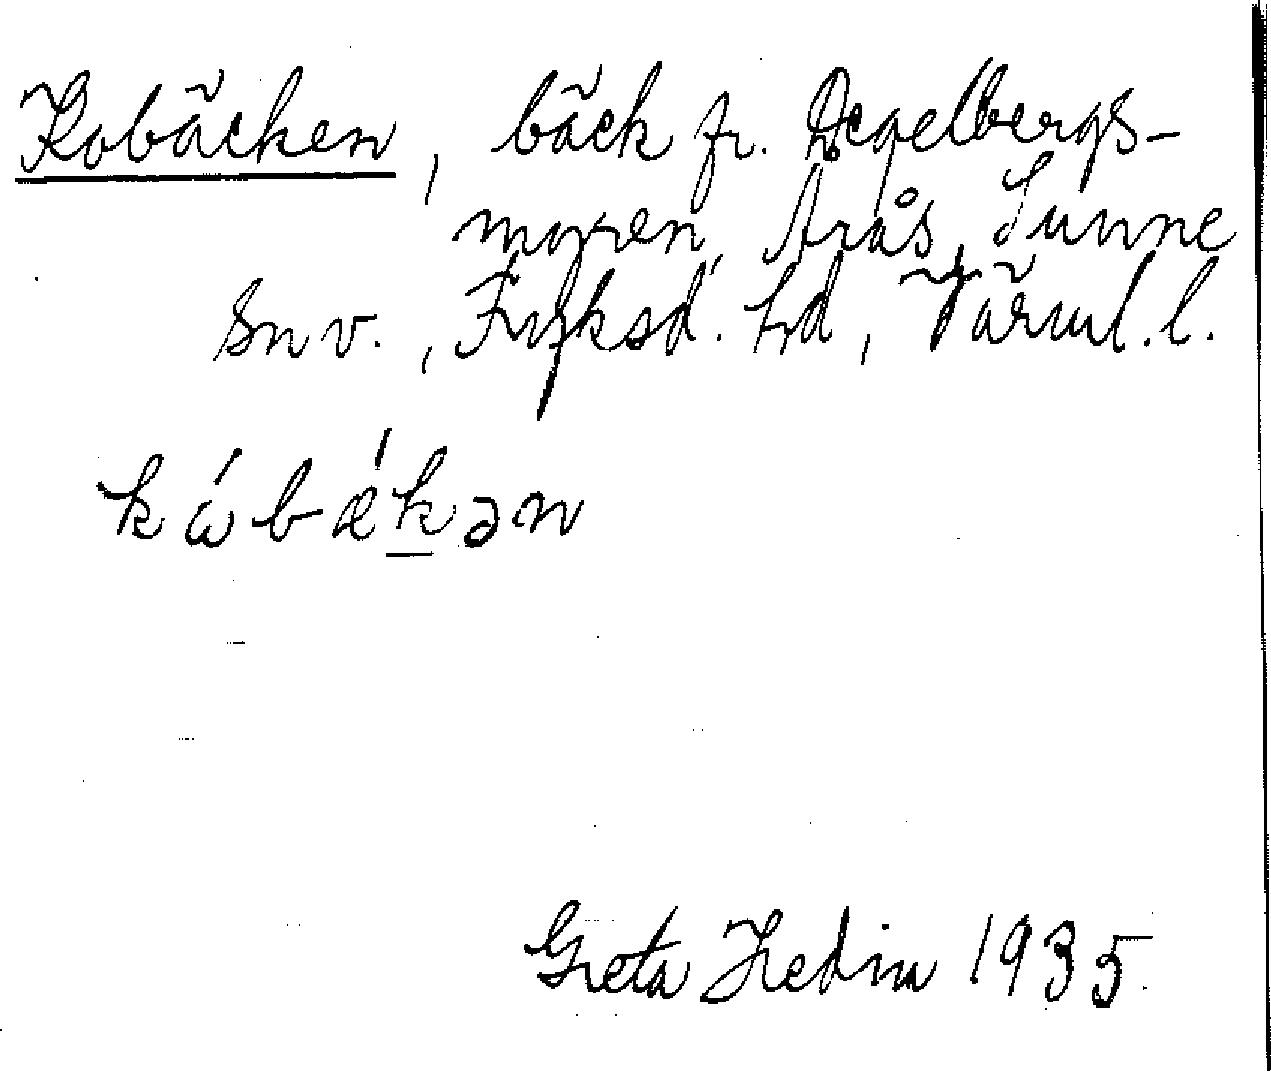 Kobäcken, bäck fr. Degelbergs-
myren, Arås, Sunne
sn v., Fryksd. hd, Värml. l.
kώbǽk̲ən
Greta Hedin 1935.